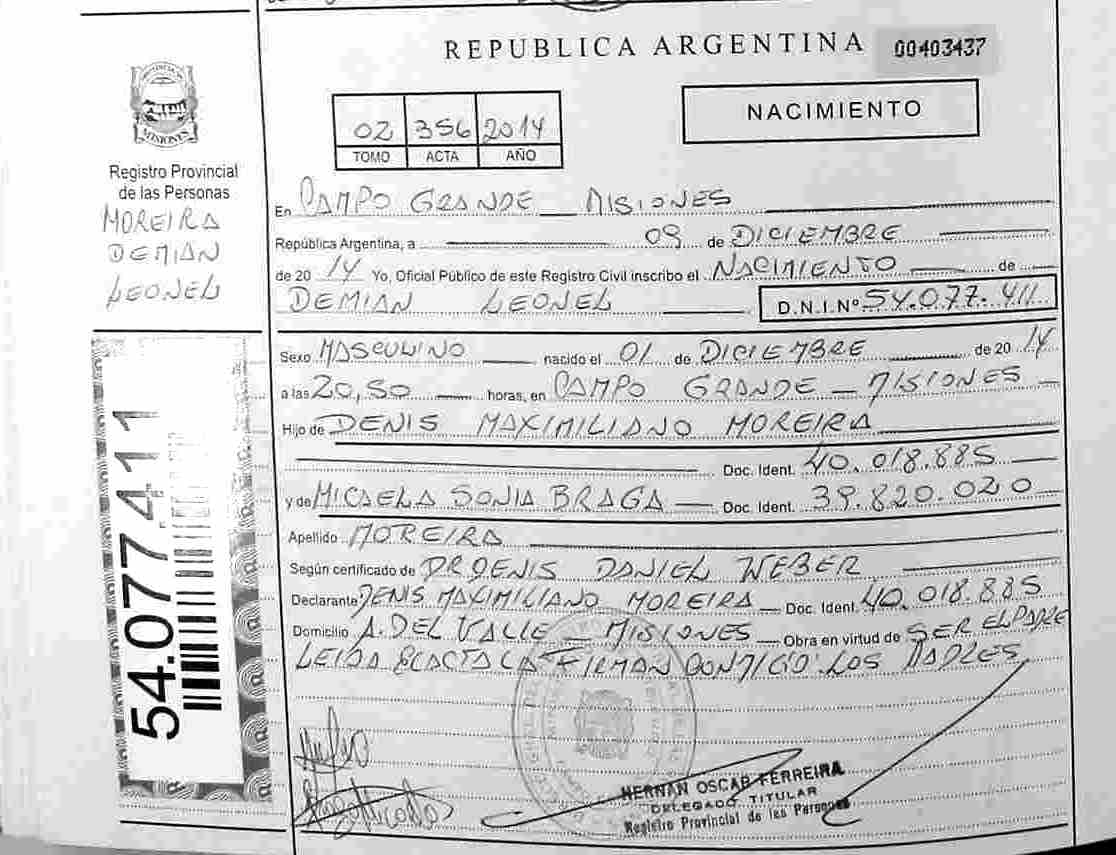 REPUBLICA ARGENTINA 00403437
PROVINCIA DE
MISIONES
NACIMIENTO
02 356 2014
TOMO ACTA AÑO
Registro Provincial
de las Personas
MOREIRA
DEMIAN
LEONEL
En CAMPO GRANDE MISIONES
República Argentina, a 09 de DICIEMBRE
de 2014 Yo, Oficial Público de este Registro Civil inscribo el NACIMIENTO de
DEMIAN LEONEL D.N.I.Nº 54.077.411
Sexo MASCULINO nacido el 01 de DICIEMBRE de 2014
a las 20,50 horas, en CAMPO GRANDE - MISIONES
Hijo de DENIS MAXIMILIANO MOREIRA
Doc. Ident. 40.018.885
y de MICAELA SONIA BRAGA Doc. Ident. 39.820.020
Apellido MOREIRA
Según certificado de DR DENIS DANIEL WEBER
Declarante DENIS MAXIMILIANO MOREIRA Doc. Ident. 40.018.885
Domicilio A. DEL VALLE - MISIONES Obra en virtud de SER EL PADRE
LEIDA EL ACTA LA FIRMAN CONMIGO LOS PADRES
54.077.411
HERNAN OSCAR FERREIRA
DELEGADO TITULAR
Registro Provincial de las Personas